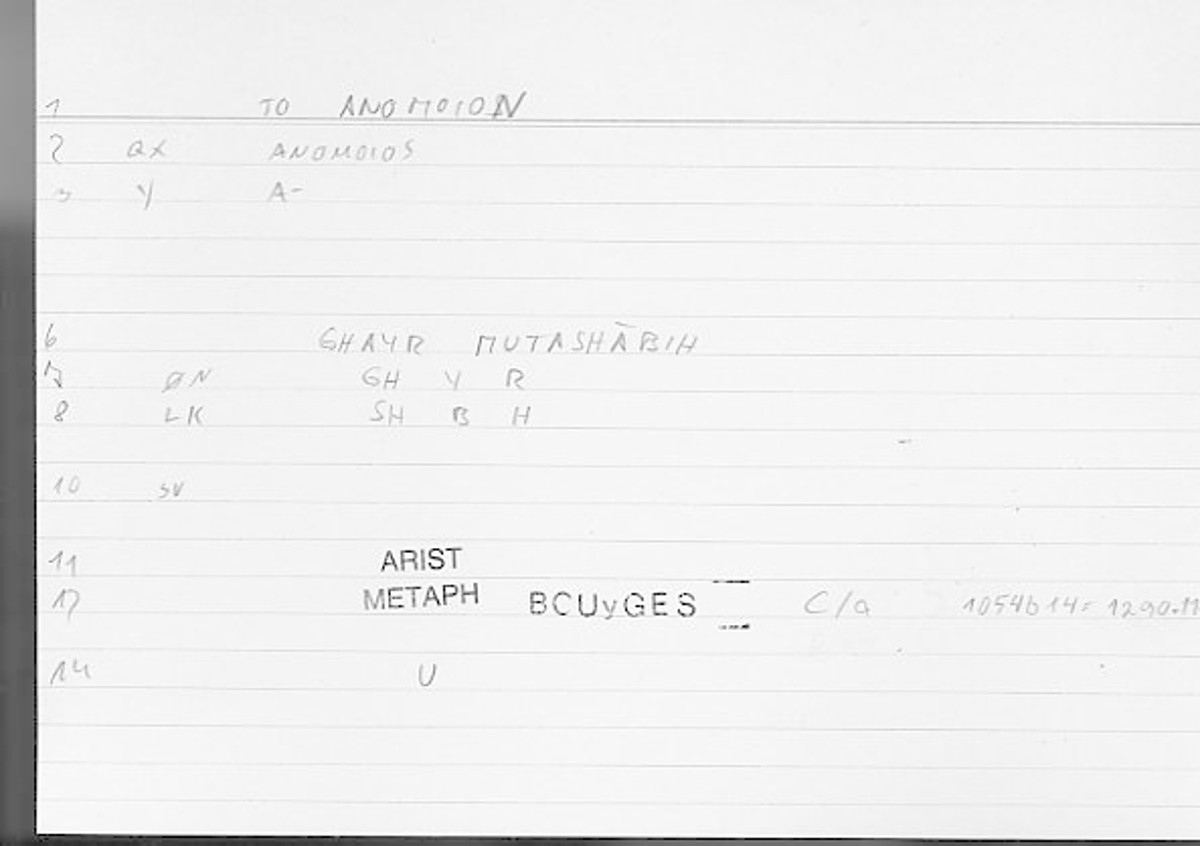 1 TO ANOMOION
2 ax ANOMOIOS
3 y A-
6 GHAYR MUTASHĀBIH
7 ØN GH Y R
8 LK SH B H
10 SV
11 ARIST
12 METAPH BCUyGES C/a 1054b14= 1290.11
14 U